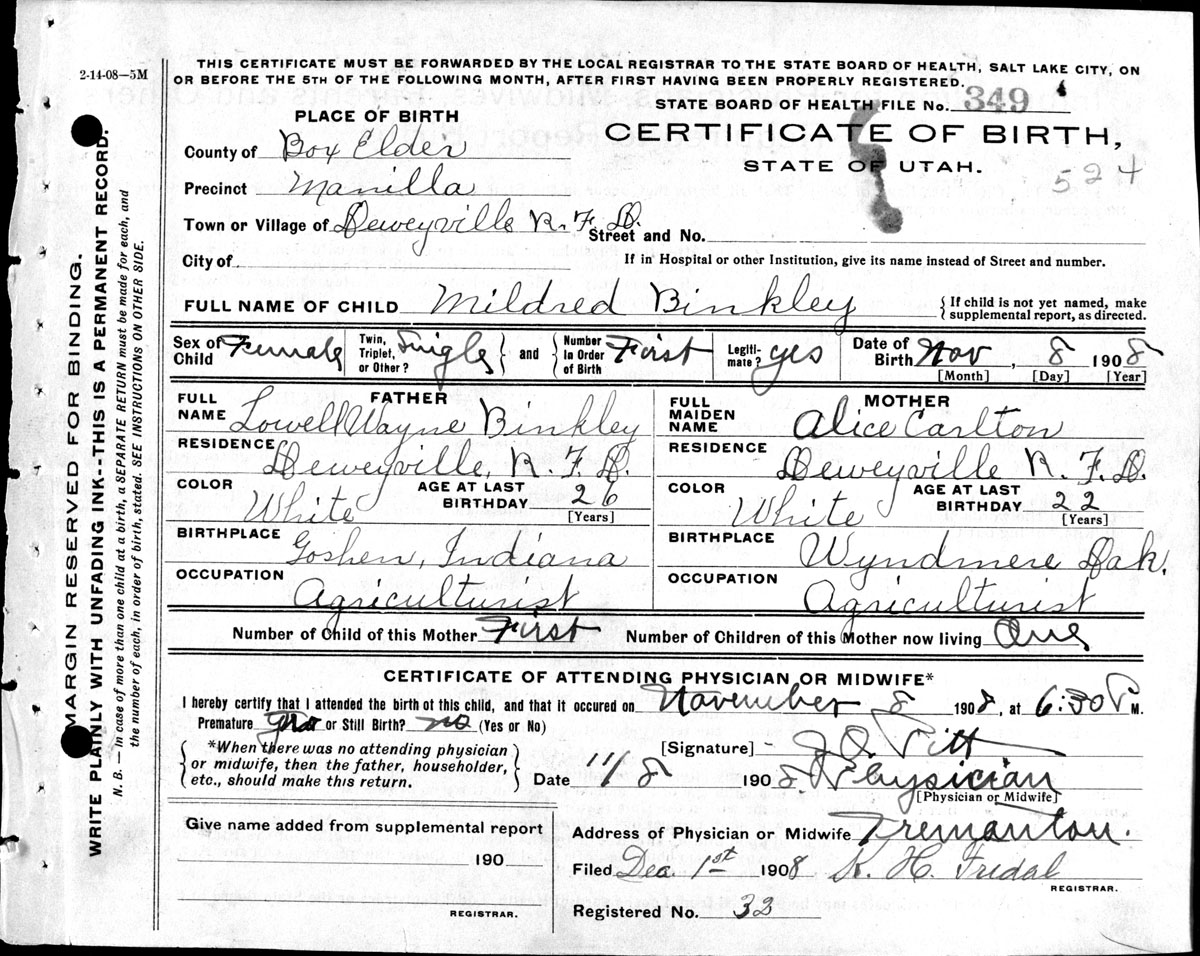 2-14-08—5M
THIS CERTIFICATE MUST BE FORWARDED BY THE LOCAL REGISTRAR TO THE STATE BOARD OF HEALTH, SALT LAKE CITY, ON
OR BEFORE THE 5TH OF THE FOLLOWING MONTH, AFTER FIRST HAVING BEEN PROPERLY REGISTERED.
STATE BOARD OF HEALTH FILE No. 349
PLACE OF BIRTH
CERTIFICATE OF BIRTH,
STATE OF UTAH.
524
County of Box Elder
Precinct Manilla
Town or Village of Deweyville R. F. D.
Street and No.
City of
If in Hospital or other Institution, give its name instead of Street and number.
FULL NAME OF CHILD Mildred Binkley { If child is not yet named, make
supplemental report, as directed.
Sex of Child Female Twin, Triplet, or Other? Single } and { Number In Order of Birth First Legiti-mate? yes Date of Birth Nov, 8 1908
[Month] [Day] [Year]
FATHER
FULL NAME Lowell Wayne Binkley
RESIDENCE Deweyville, R. F. D.
COLOR White AGE AT LAST BIRTHDAY 26
[Years]
BIRTHPLACE Goshen, Indiana
OCCUPATION Agriculturist
MOTHER
FULL MAIDEN NAME Alice Carlton
RESIDENCE Deweyville R. F. D.
COLOR White AGE AT LAST BIRTHDAY 22
[Years]
BIRTHPLACE Wyndmere Dak.
OCCUPATION Agriculturist
Number of Child of this Mother First Number of Children of this Mother now living One
CERTIFICATE OF ATTENDING PHYSICIAN OR MIDWIFE*
I hereby certify that I attended the birth of this child, and that it occured on November 8 1908, at 6:30 P M.
Premature or Still Birth? no (Yes or No)
{ *When there was no attending physician
or midwife, then the father, householder,
etc., should make this return. }
[Signature]
Pitt
Date 11/8 1908. Physician
[Physician or Midwife]
Give name added from supplemental report
190
REGISTRAR.
Address of Physician or Midwife Tremonton.
Filed Dec. 1st 1908 K. H. Fridal
REGISTRAR.
Registered No. 32
MARGIN RESERVED FOR BINDING.
WRITE PLAINLY WITH UNFADING INK--THIS IS A PERMANENT RECORD.
N. B. — In case of more than one child at a birth, a SEPARATE RETURN must be made for each, and
the number of each, in order of birth, stated. SEE INSTRUCTIONS ON OTHER SIDE.